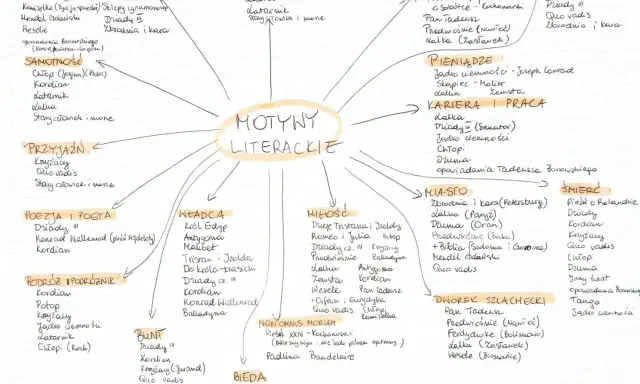 Sklepy cynamonowe
Mendel Gdański
Dziady III
Hesole
Zbrodnia i kara
Latarnik
Stary człowiek i morze
o Sobótce - Kochanowski
Pan Tadeusz
Przedwiośnie (Nawłoć)
Lalka (Zasławek)
Dziady III
Quo vadis
Zbrodnia i kara
SAMOTNOŚĆ
Chłopi (Jagna)
Kordian
Latarnik
Lalka
Stary człowiek i morze
PRZYJAŹŃ
Krzyżacy
Quo vadis
Stary człowiek i morze
POEZJA I POETA
Dziady III
Konrad Wallenrod (pieśń Wajdeloty)
Kordian
PODRÓŻ I PODRÓŻNIK
Kordian
Potop
Krzyżacy
Jądro ciemności
Latarnik
Chłopi (Roch)
MOTYWY
LITERACKIE
WŁADCA
Król Edyp
Antygona
Makbet
Tristan i Izolda
Do króla - Krasicki
Dziady cz. III
Kordian
Konrad Wallenrod
Balladyna
BUNT
Dziady III
Kordian
Krzyżacy (Jurand)
Quo vadis
BIEDA
NON OMNIS MORIAR
Pieśń XXIV - Kochanowski
Padlina Baudelaire
MIŁOŚĆ
Dzieje Tristana i Izoldy
Romeo i Julia
Potop
Dziady cz. IV
Krzyżacy
Przedwiośnie
Balladyna
Lalka
Antygona
Zemsta
Kordian
Wesele
Pan Tadeusz
Orfeusz i Eurydyka
Quo vadis
Chłopi
Kamizelka
PIENIĄDZE
Jądro ciemności - Joseph Conrad
Skąpiec - Molier
Lalka
Zemsta
KARIERA I PRACA
Lalka
Dziady III (Senator)
Jądro ciemności
Chłopi
Dżuma
opowiadania Tadeusza Borowskiego
MIASTO
Zbrodnia i kara (Petersburg)
Lalka (Paryż)
Dżuma (Oran)
Przedwiośnie (Baku)
+Biblia (Sodoma i Gomora)
Mendel Gdański
Quo vadis
ŚMIERĆ
Pieśń o Rolandzie
Dziady
Kordian
Krzyżacy
Quo vadis
Chłopi
Dżuma
Inny świat
opowiadania Borowskiego
Tango
Jądro ciemności
DWOREK SZLACHECKI
Pan Tadeusz
Przedwiośnie (Nawłoć)
Ferdydurke (Bolimowo)
Lalka (Zasławek)
Wesele (Bronowice)